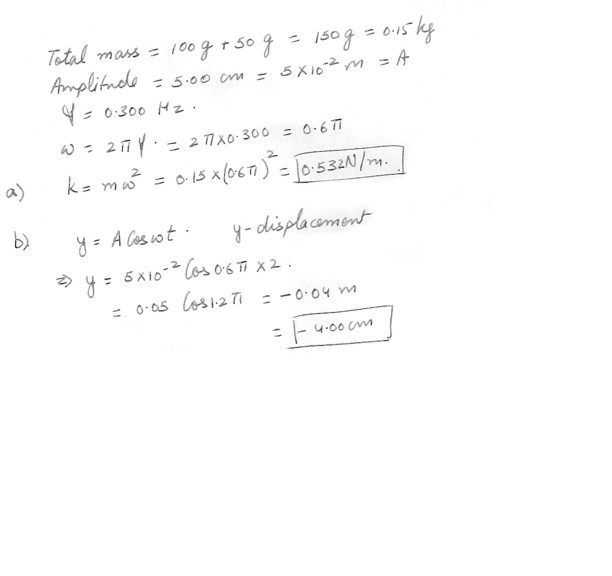 Total mass = 100 g + 50 g = 150 g = 0.15 kg
Amplitude = 5.00 cm = 5 x 10⁻² m = A
γ = 0.300 Hz.
ω = 2πγ. = 2π x 0.300 = 0.6π
a) k = mω² = 0.15 x (0.6π)² = 0.532 N/m.
b) y = A Cos ωt. y - displacement
⇒ y = 5 x 10⁻² Cos 0.6π x 2.
= 0.05 Cos 1.2π = -0.04 m
= - 4.00 cm